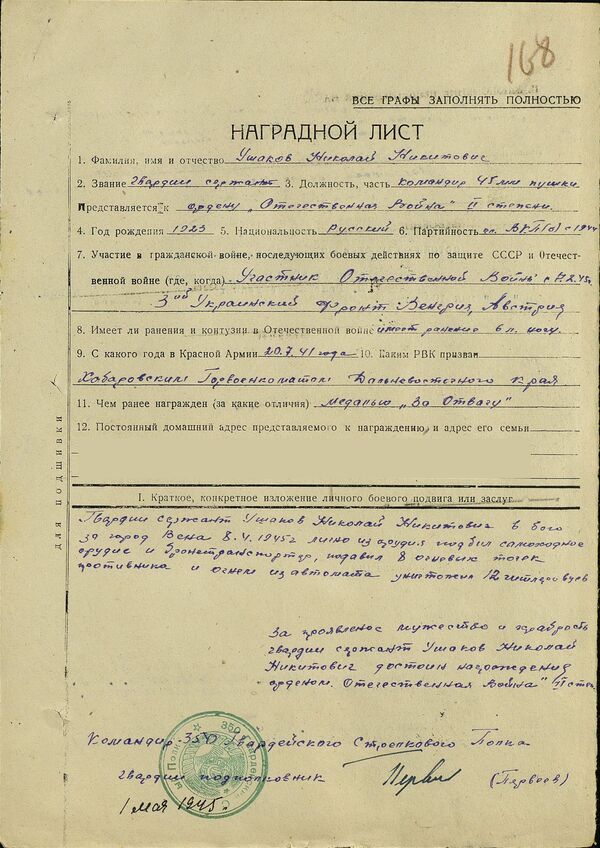 168
ВСЕ ГРАФЫ ЗАПОЛНЯТЬ ПОЛНОСТЬЮ
НАГРАДНОЙ ЛИСТ
1. Фамилия, имя и отчество Ушаков Николай Никитович
2. Звание Гвардии сержант 3. Должность, часть командир 45 мм пушки
Представляется к ордену „Отечественная Война" II степени.
4. Год рождения 1923 5. Национальность Русский 6. Партийность ВКП(б) с 1944
7. Участие в гражданской войне, последующих боевых действиях по защите СССР и Отечест-
венной войне (где, когда) Участник Отечественной Войны с 7.2.45г.
3ий Украинский фронт Венгрия, Австрия
8. Имеет ли ранения и контузии в Отечественной войне имеет ранение в л. ногу.
9. С какого года в Красной Армии 20.7.41 года 10. Каким РВК призван
Хабаровским Горвоенкоматом Дальневосточного края
11. Чем ранее награжден (за какие отличия) медалью „За Отвагу"
12. Постоянный домашний адрес представляемого к награждению и адрес его семьи
для подшивки
I. Краткое, конкретное изложение личного боевого подвига или заслуг
Гвардии сержант Ушаков Николай Никитович в бою
за город Вена 8.4.1945г лично из орудия подбил самоходное
орудие и бронетранспортер, подавил 8 огневых точек
противника и огнем из автомата уничтожил 12 гитлеровцев
За проявленое мужество и храбрость
гвардии сержант Ушаков Николай
Никитович достоин награждения
орденом „Отечественная Война" II степ.
Командир 350 Гвардейского Стрелкового Полка
гвардии подполковник
1 мая 1945г.